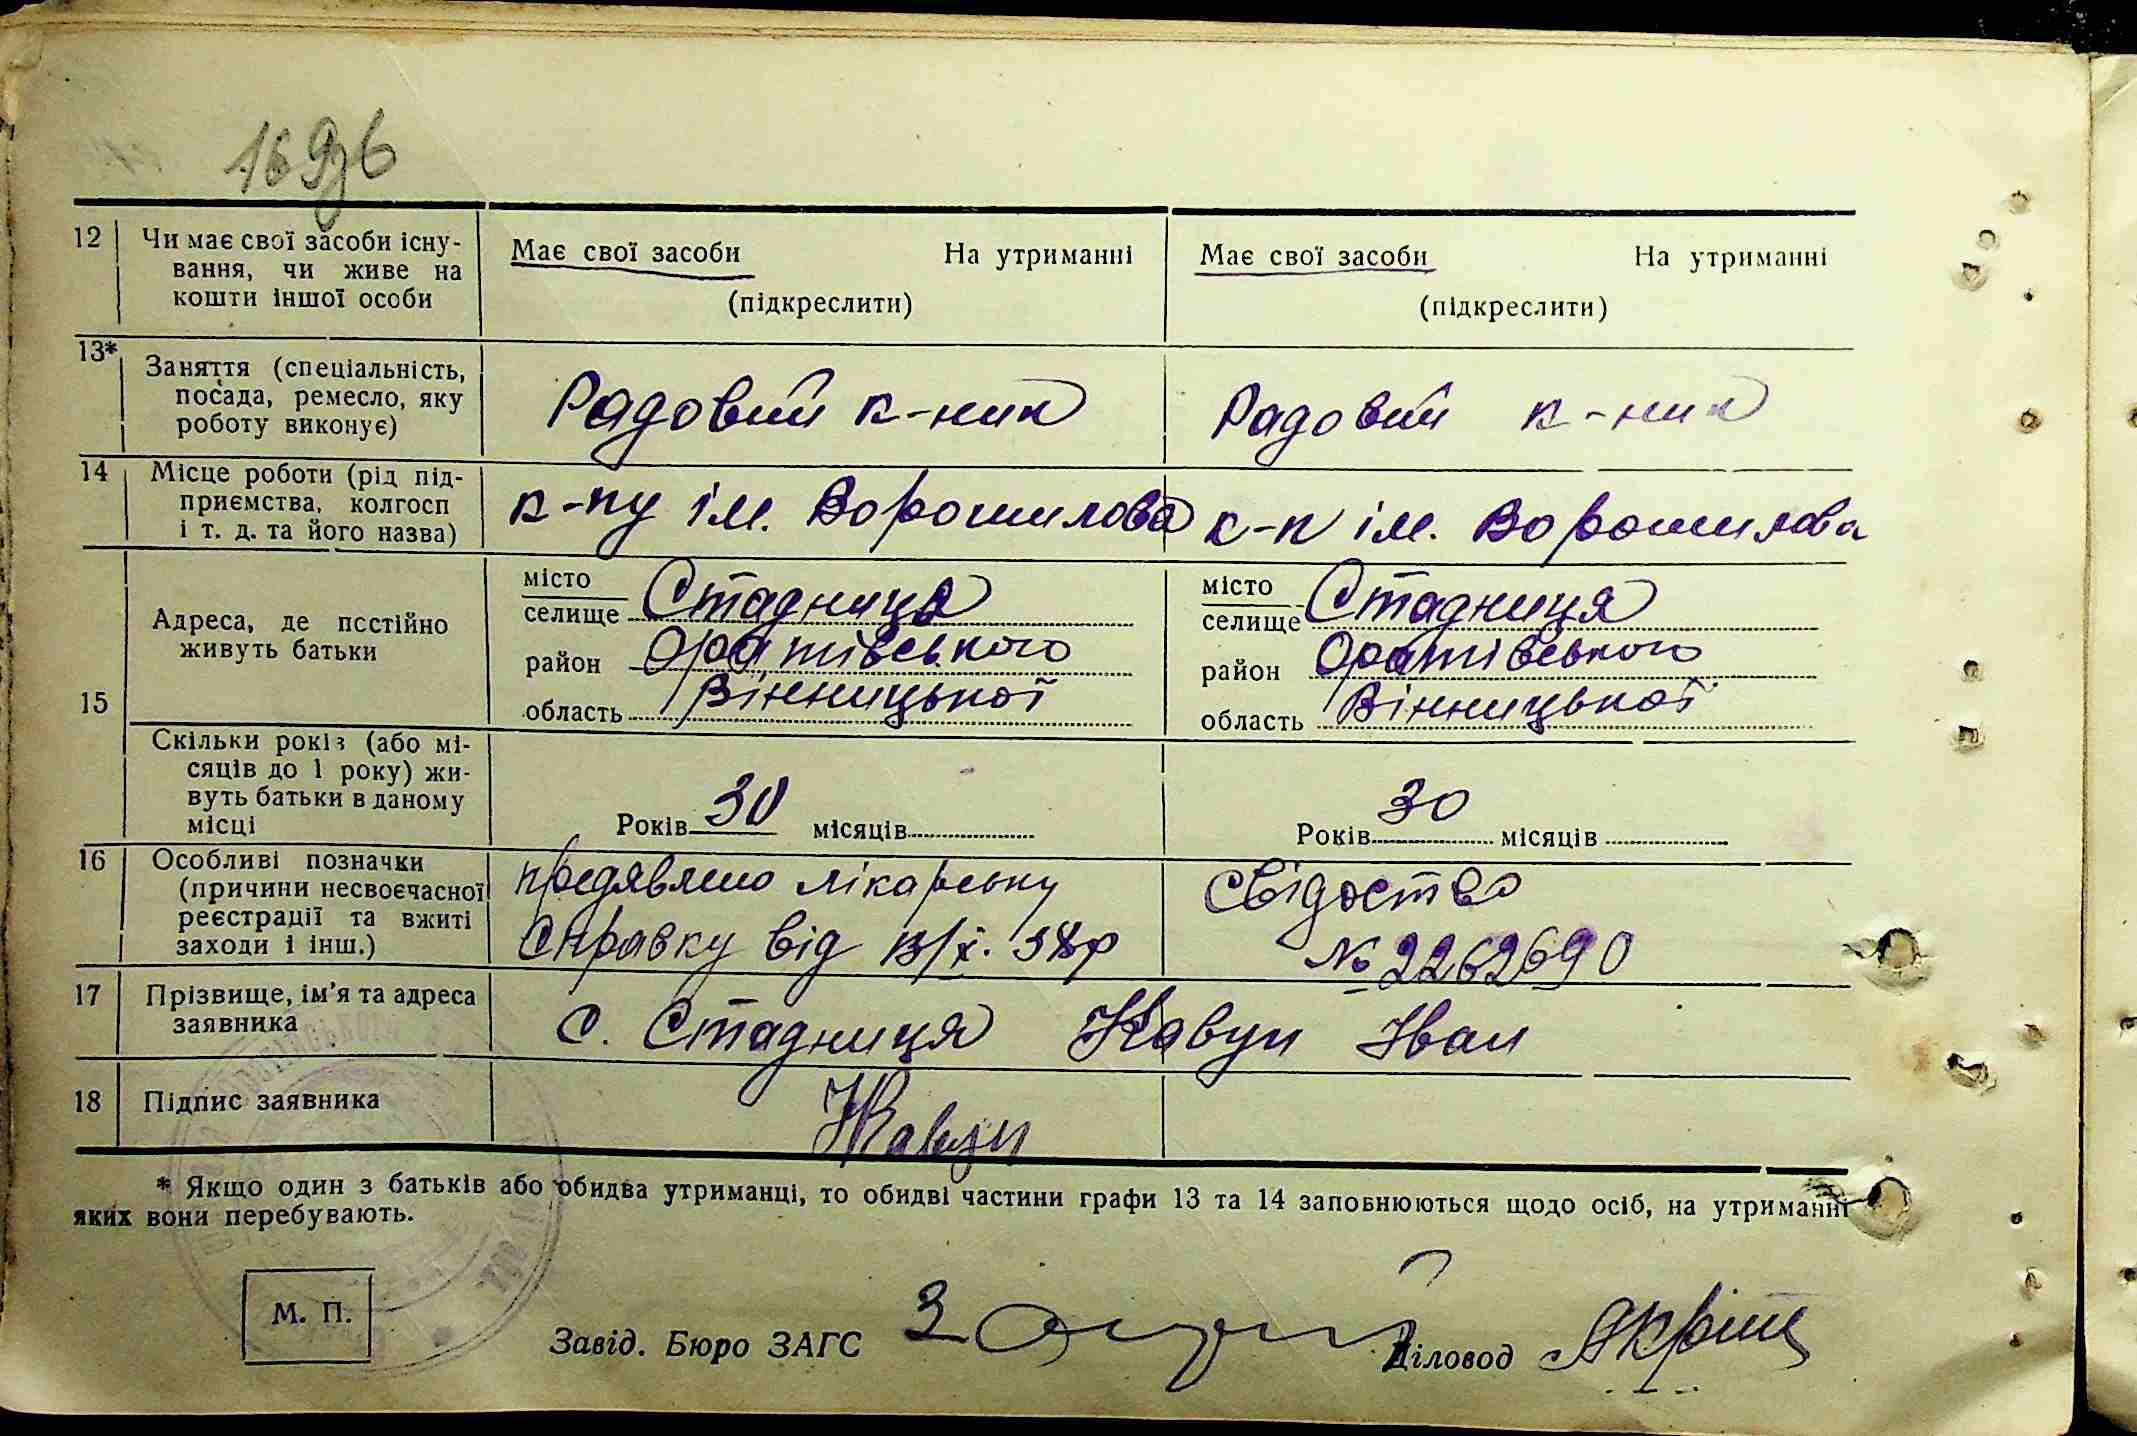 169зв
12 Чи має свої засоби існу-
вання, чи живе на
кошти іншої особи
Має свої засоби На утриманні
(підкреслити)
Має свої засоби На утриманні
(підкреслити)
13* Заняття (спеціальність,
посада, ремесло, яку
роботу виконує)
Радовий к-ник
Радовий к-ник
14 Місце роботи (рід під-
приємства, колгосп
і т. д. та його назва)
к-пу ім. Ворошилова
к-п ім. Ворошилова
15
Адреса, де постійно
живуть батьки
місто
селище Стадниця
район Оратівського
область Вінницької
місто
селище Стадниця
район Оратівського
область Вінницької
Скільки років (або мі-
сяців до 1 року) жи-
вуть батьки в даному
місці
Років 30 місяців
Років 30 місяців
16 Особливі позначки
(причини несвоєчасної
реєстрації та вжиті
заходи і інш.)
предявлено лікарську
справку від 13/X. 38р
Свідоство
№ 2262690
17 Прізвище, ім'я та адреса
заявника
с. Стадниця Кавун Іван
18 Підпис заявника
Кавун
* Якщо один з батьків або обидва утриманці, то обидві частини графи 13 та 14 заповнюються щодо осіб, на утриманні
яких вони перебувають.
М. П.
Завід. Бюро ЗАГС
Діловод